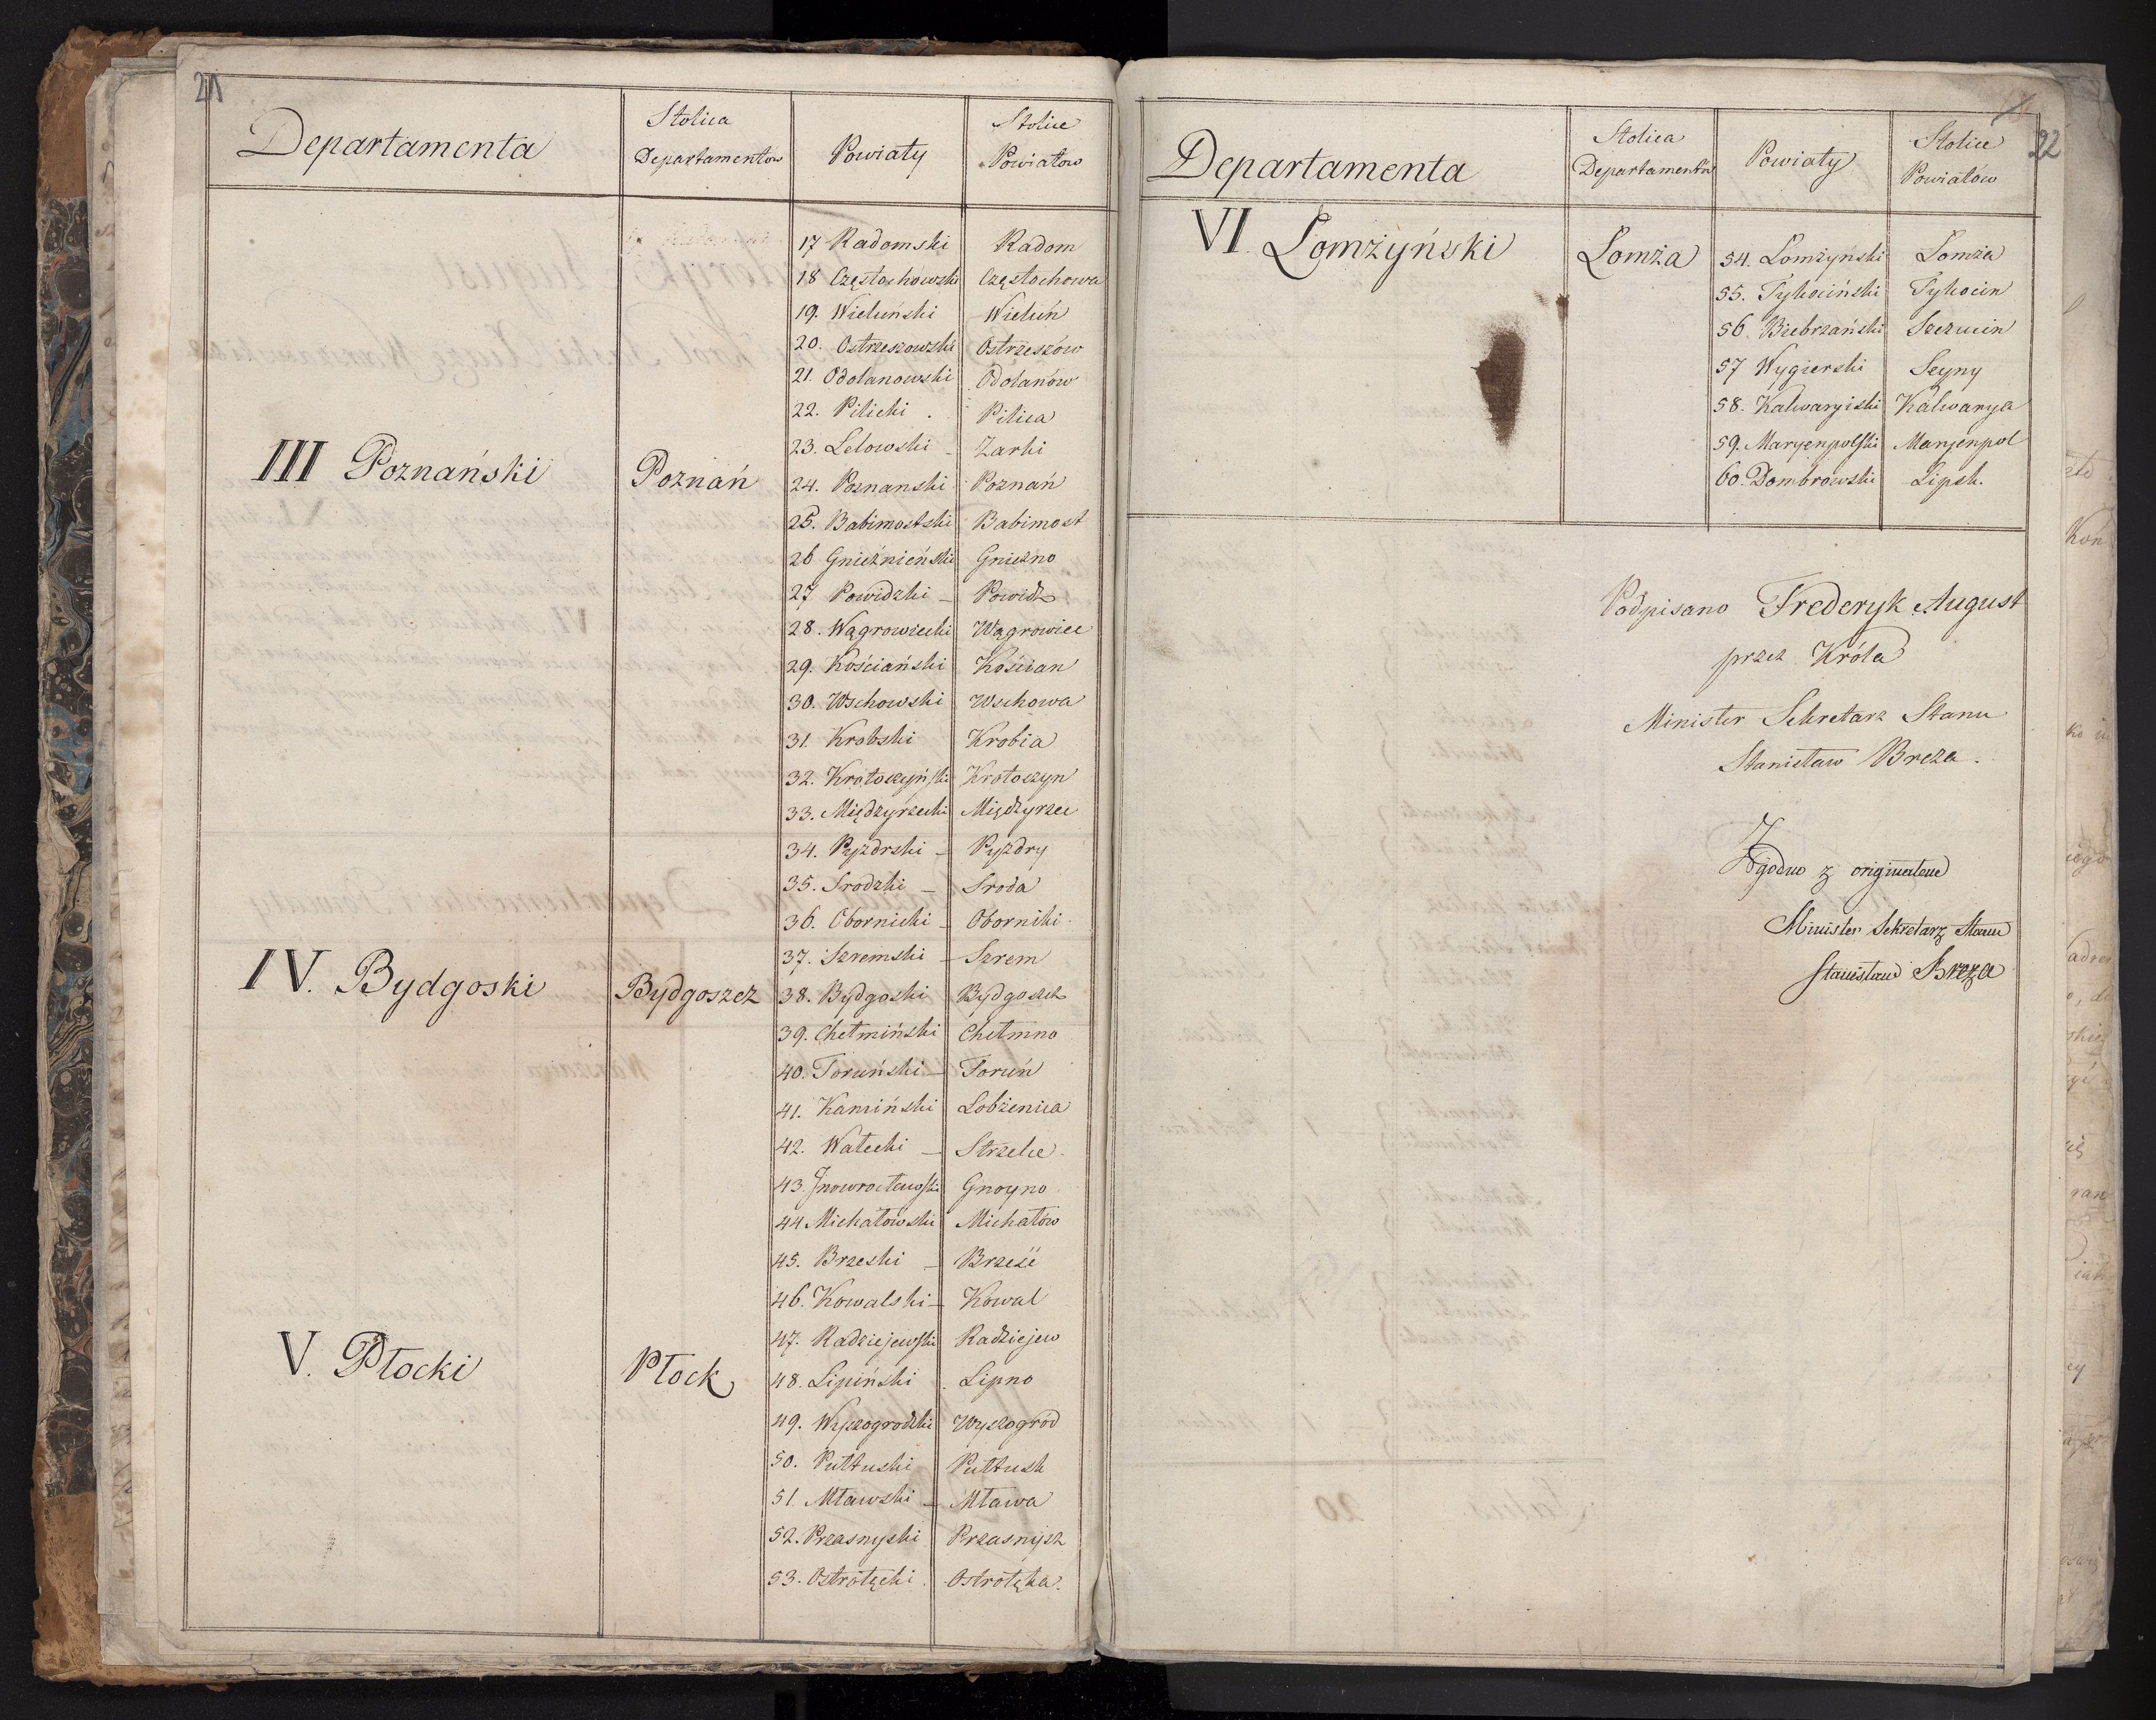 21
Departamenta Stolica Departamentów Powiaty Stolice Powiatow
17 Radomski Radom
18 Częstochowski Częstochowa
19. Wieluński Wieluń
20. Ostrzeszowski Ostrzeszów
21. Odolanowski Odolanów
22. Pilicki Pilica
23. Lelowski – Zarki
III Poznański Poznań 24. Poznanski Poznań
25. Babimostski Babimost
26 Gnieźnieński Gniezno
27 Powidzki – Powidz
28. Wągrowiecki Wągrowiec
29. Kościański Kościan
30. Wschowski Wschowa
31. Krobski Krobia
32. Krotoczyński Krotoczyn
33. Międzyrzecki Międzyrzec
34. Pyzdrski – Pyzdry
35. Srodzki – Sroda
36. Obornicki – Oborniki
37. Szremski – Szrem
IV. Bydgoski Bydgoszcz 38. Bydgoski Bydgoszcz
39. Chełmiński Chełmno
40. Toruński – Toruń
41. Kamiński Lobżenica
42. Wałecki – Strzelce
43. Jnowrocławski Gnoyno
44 Michałowski Michałów
45. Brzeski – Brześć
46. Kowalski – Kowal
47. Radziejewski Radziejew
V. Płocki Płock 48. Lipiński Lipno
49. Wyszogrodzki Wyszogród
50. Pułtuski Pułtusk
51. Mławski – Mława
52. Przasnyski Przasnysz
53. Ostrołęcki Ostrołęka.
22
Departamenta Stolica Departamentów Powiaty Stolice Powiatów
VI Lomżyński Lomża 54. Lomżyński Lomża
55. Tykociński Tykocin
56 Biebrzański Szczucin
57 Wygierski Seyny
58. Kalwaryiski Kalwarya
59. Maryenpolski Maryenpol
60. Dombrowski Lipsk.
Podpisano Frederyk August
przez Króla
Minister Sekretarz Stanu
Stanisław Breza.
Zgodno z originałem
Minister Sekretarz Stanu
Stanisław Breza